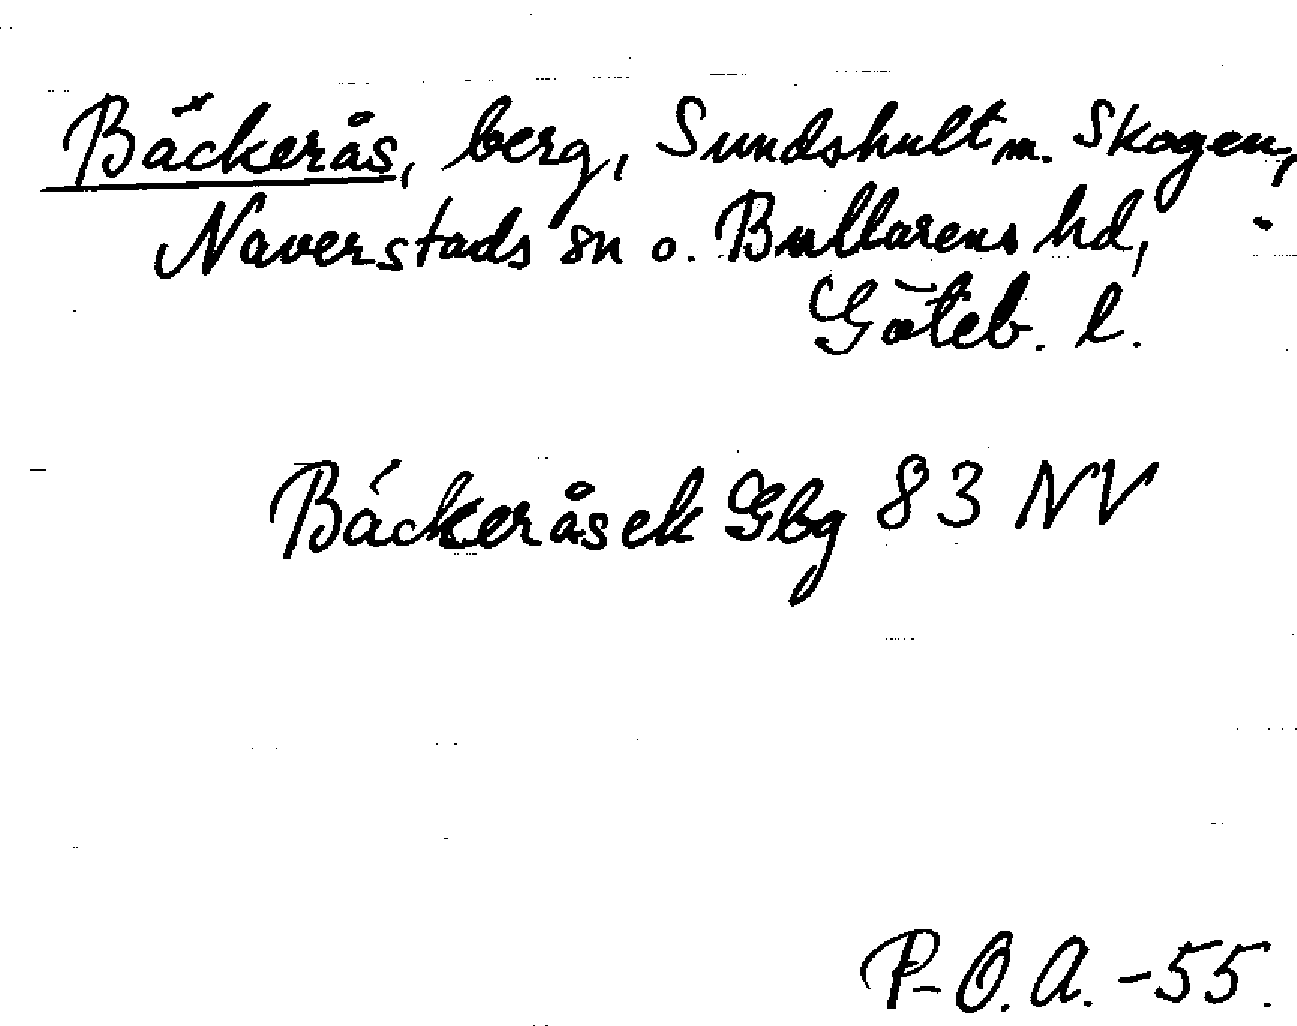 Bäckerås, berg, Sundshult m. Skogen,
Naverstads sn o. Bullarens hd,
Göteb. l.
Bäckeråsek Gbg 83 NV
P-O.A. -55.